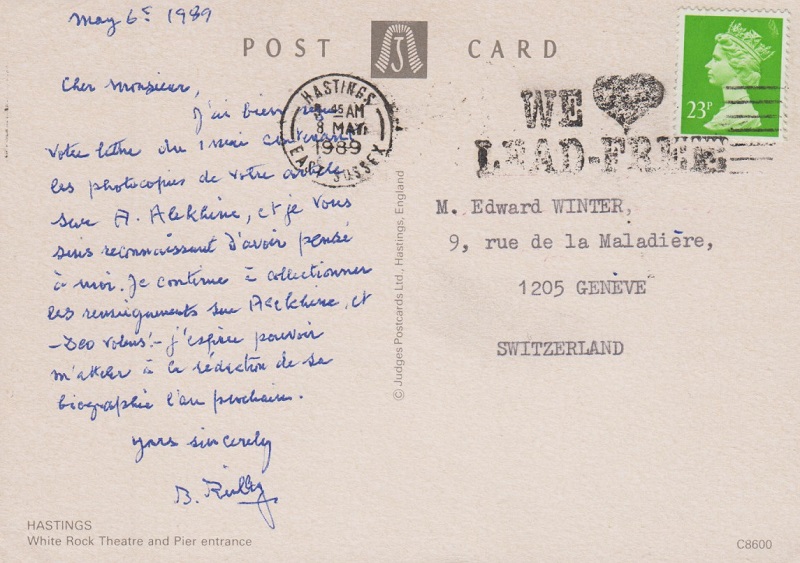 May 6th 1989
POST CARD
Cher Monsieur,
J'ai bien reçu
votre lettre du 1 mai contenant
les photocopies de votre article
sur A. Alekhine, et je vous
suis reconnaissant d'avoir pensé
à moi. Je continue à collectionner
les renseignements sur Alekhine, et
- Deo volens! - j'espère pouvoir
m'atteler à la rédaction de sa
biographie l'an prochain.
Yours sincerely
B. Reilly
HASTINGS
45 AM
8 MAY
1989
EAST SUSSEX
WE
LEAD-FREE
23P
M. Edward WINTER,
9, rue de la Maladière,
1205 GENÈVE
SWITZERLAND
© Judges Postcards Ltd., Hastings, England
HASTINGS
White Rock Theatre and Pier entrance
C8600